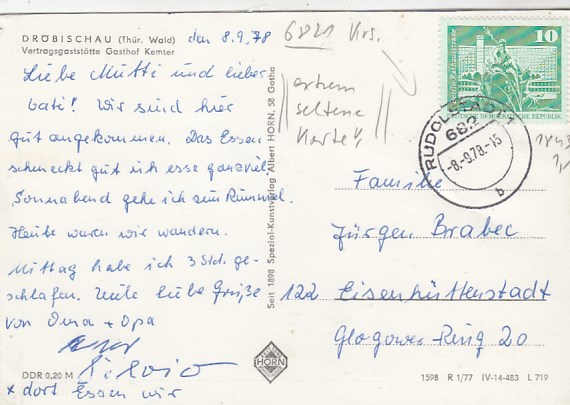 DRÖBISCHAU (Thür. Wald)
Vertragsgaststätte Gasthof Kemter
den 8.9.78
6821 Krs.
extrem
seltene
Karte!
Liebe Mutti und lieber
Vati! Wir sind hier
gut angekommen. Das Essen
schmeckt gut ich esse ganz viel.
Sonnabend gehe ich zum Rummel.
Heute waren wir wandern.
Mittag habe ich 3 Std. ge-
schlafen. Viele liebe Grüße
von Oma + Opa
* dort Essen wir
DDR 0,20 M
Seit 1898 Spezial-Kunstverlag Albert HORN, 58 Gotha
HORN
10
DEUTSCHE DEMOKRATISCHE REPUBLIK
RUDOLSTADT
682
-8.-9.78.-15
b
1843
Familie
Jürgen Brabec
122 Eisenhüttenstadt
Glogower-Ring 20
1598 R 1/77 IV-14-483 L 719